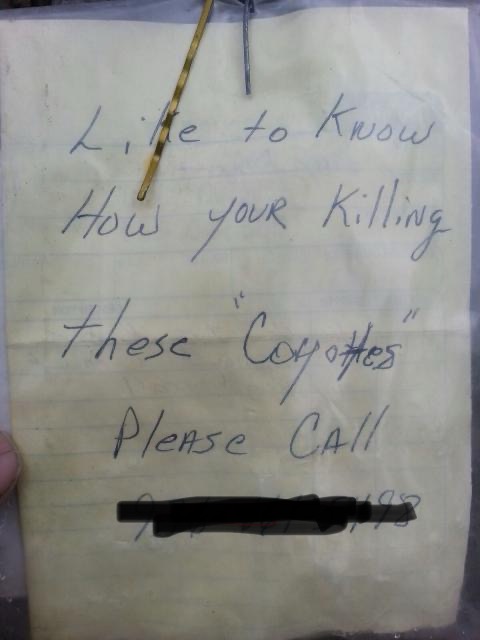 Like to Know
How your Killing
these "Coyottes"
Please Call